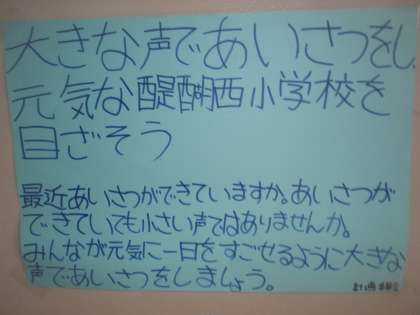 大きな声であいさつをし
元気な醍醐西小学校を
目ざそう
最近あいさつができていますか。あいさつが
できていても小さい声ではありませんか。
みんなが元気に一日をすごせるように大きな
声であいさつをしましょう。